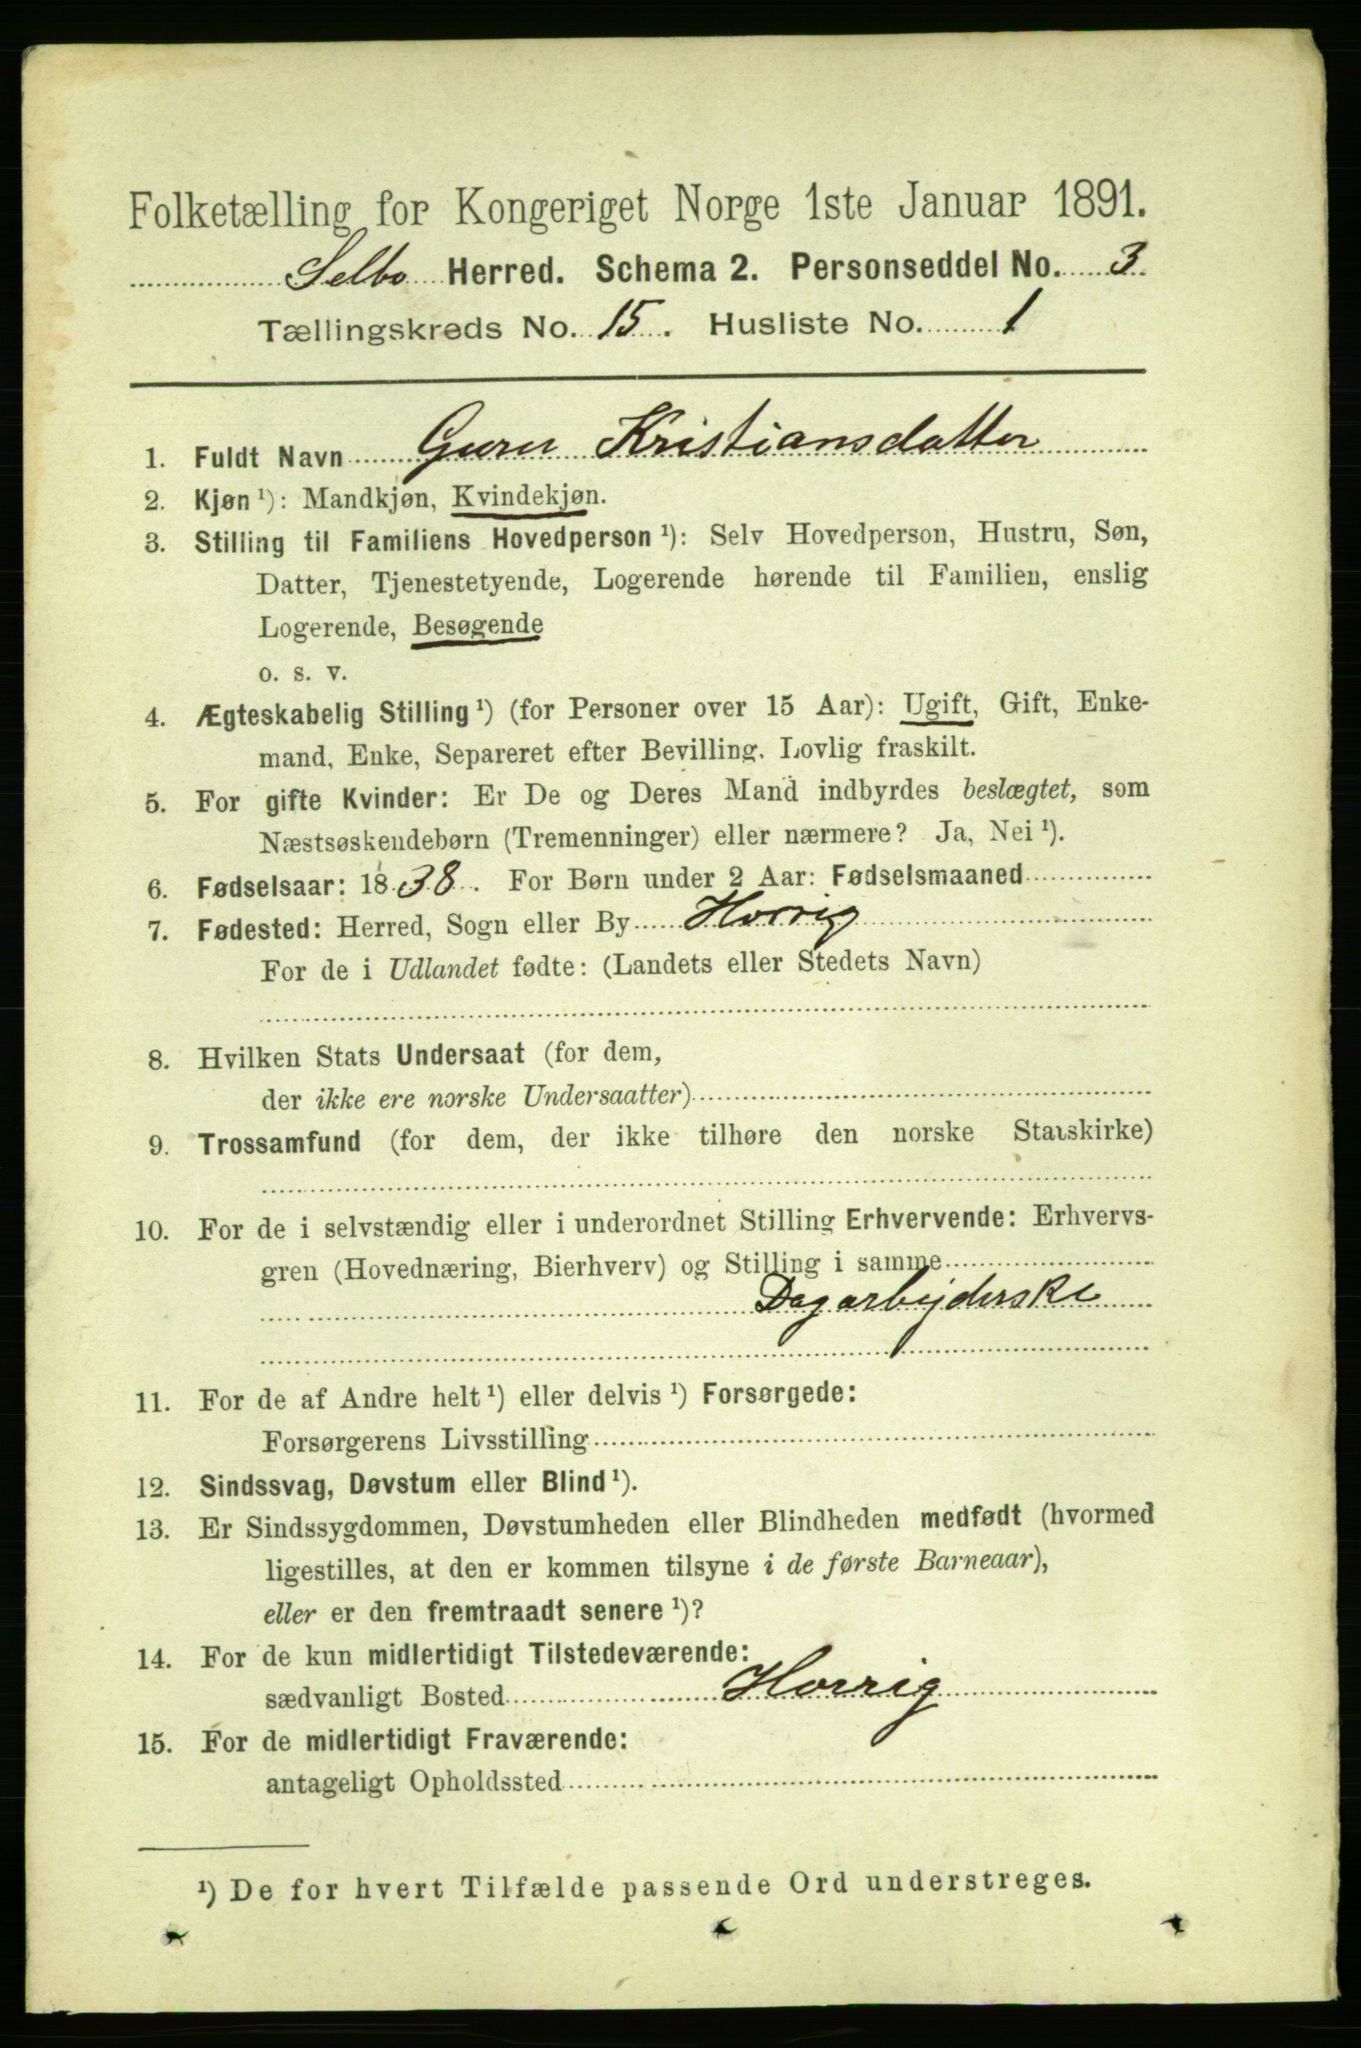 Folketælling for Kongeriget Norge 1ste Januar 1891.
Selbo Herred. Schema 2. Personseddel No. 3
Tællingskreds No. 15. Husliste No. 1
1. Fuldt Navn Guru Kristiansdatter
2. Kjøn ¹): Mandkjøn, Kvindekjøn.
3. Stilling til Familiens Hovedperson ¹): Selv Hovedperson, Hustru, Søn,
Datter, Tjenestetyende, Logerende hørende til Familien, enslig
Logerende, Besøgende
o. s. v.
4. Ægteskabelig Stilling ¹) (for Personer over 15 Aar): Ugift, Gift, Enke-
mand, Enke, Separeret efter Bevilling. Lovlig fraskilt.
5. For gifte Kvinder: Er De og Deres Mand indbyrdes beslægtet, som
Næstsøskendebørn (Tremenninger) eller nærmere? Ja, Nei ¹).
6. Fødselsaar: 1838. For Børn under 2 Aar: Fødselsmaaned
7. Fødested: Herred, Sogn eller By Horrig
For de i Udlandet fødte: (Landets eller Stedets Navn)
8. Hvilken Stats Undersaat (for dem,
der ikke ere norske Undersaatter)
9. Trossamfund (for dem, der ikke tilhøre den norske Statskirke)
10. For de i selvstændig eller i underordnet Stilling Erhvervende: Erhvervs-
gren (Hovednæring, Bierhverv) og Stilling i samme
Dagarbejderske
11. For de af Andre helt ¹) eller delvis ¹) Forsørgede:
Forsørgerens Livsstilling
12. Sindssvag, Døvstum eller Blind ¹).
13. Er Sindssygdommen, Døvstumheden eller Blindheden medfødt (hvormed
ligestilles, at den er kommen tilsyne i de første Barneaar),
eller er den fremtraadt senere ¹)?
14. For de kun midlertidigt Tilstedeværende:
sædvanligt Bosted Horrig
15. For de midlertidigt Fraværende:
antageligt Opholdssted
¹) De for hvert Tilfælde passende Ord understreges.